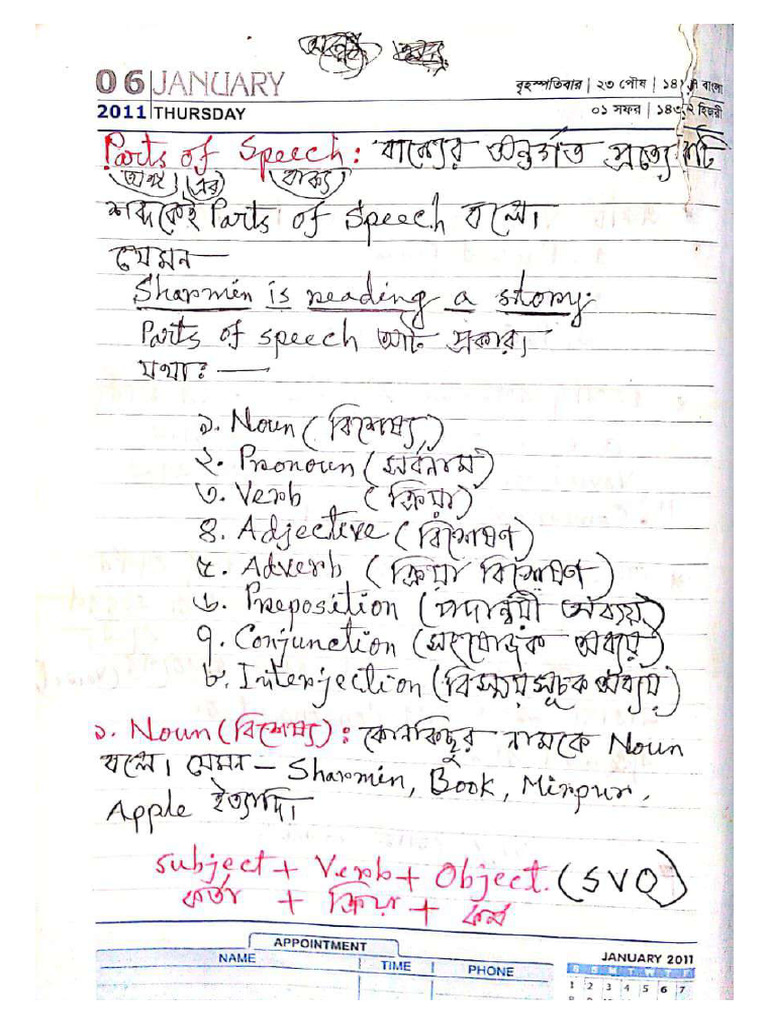 06 JANUARY
বৃহস্পতিবার | ২৩ পৌষ | ১৪ বাংলা
2011 THURSDAY
০১ সফর | ১৪৩২ হিজরী
Parts of Speech: বাক্যের অন্তর্গত প্রত্যেকটি
অংশ এর বাক্য
শব্দকেই Parts of Speech বলে।
যেমন—
Sharmin is reading a story.
Parts of speech আট প্রকার।
যথাঃ —
১. Noun (বিশেষ্য)
২. Pronoun (সর্বনাম)
৩. Verb (ক্রিয়া)
৪. Adjective (বিশেষণ)
৫. Adverb (ক্রিয়া বিশেষণ)
৬. Preposition (পদান্বয়ী অব্যয়)
৭. Conjunction (সংযোজক অব্যয়)
৮. Interjection (বিস্ময়সূচক অব্যয়)
১. Noun (বিশেষ্য): কোনকিছুর নামকে Noun
বলে। যেমন - Sharmin, Book, Mirpur,
Apple ইত্যাদি।
Subject + Verb + Object. (SVO)
কর্তা + ক্রিয়া + কর্ম
APPOINTMENT
NAME TIME PHONE
JANUARY 2011
S S M T W T F
1 2 3 4 5 6 7